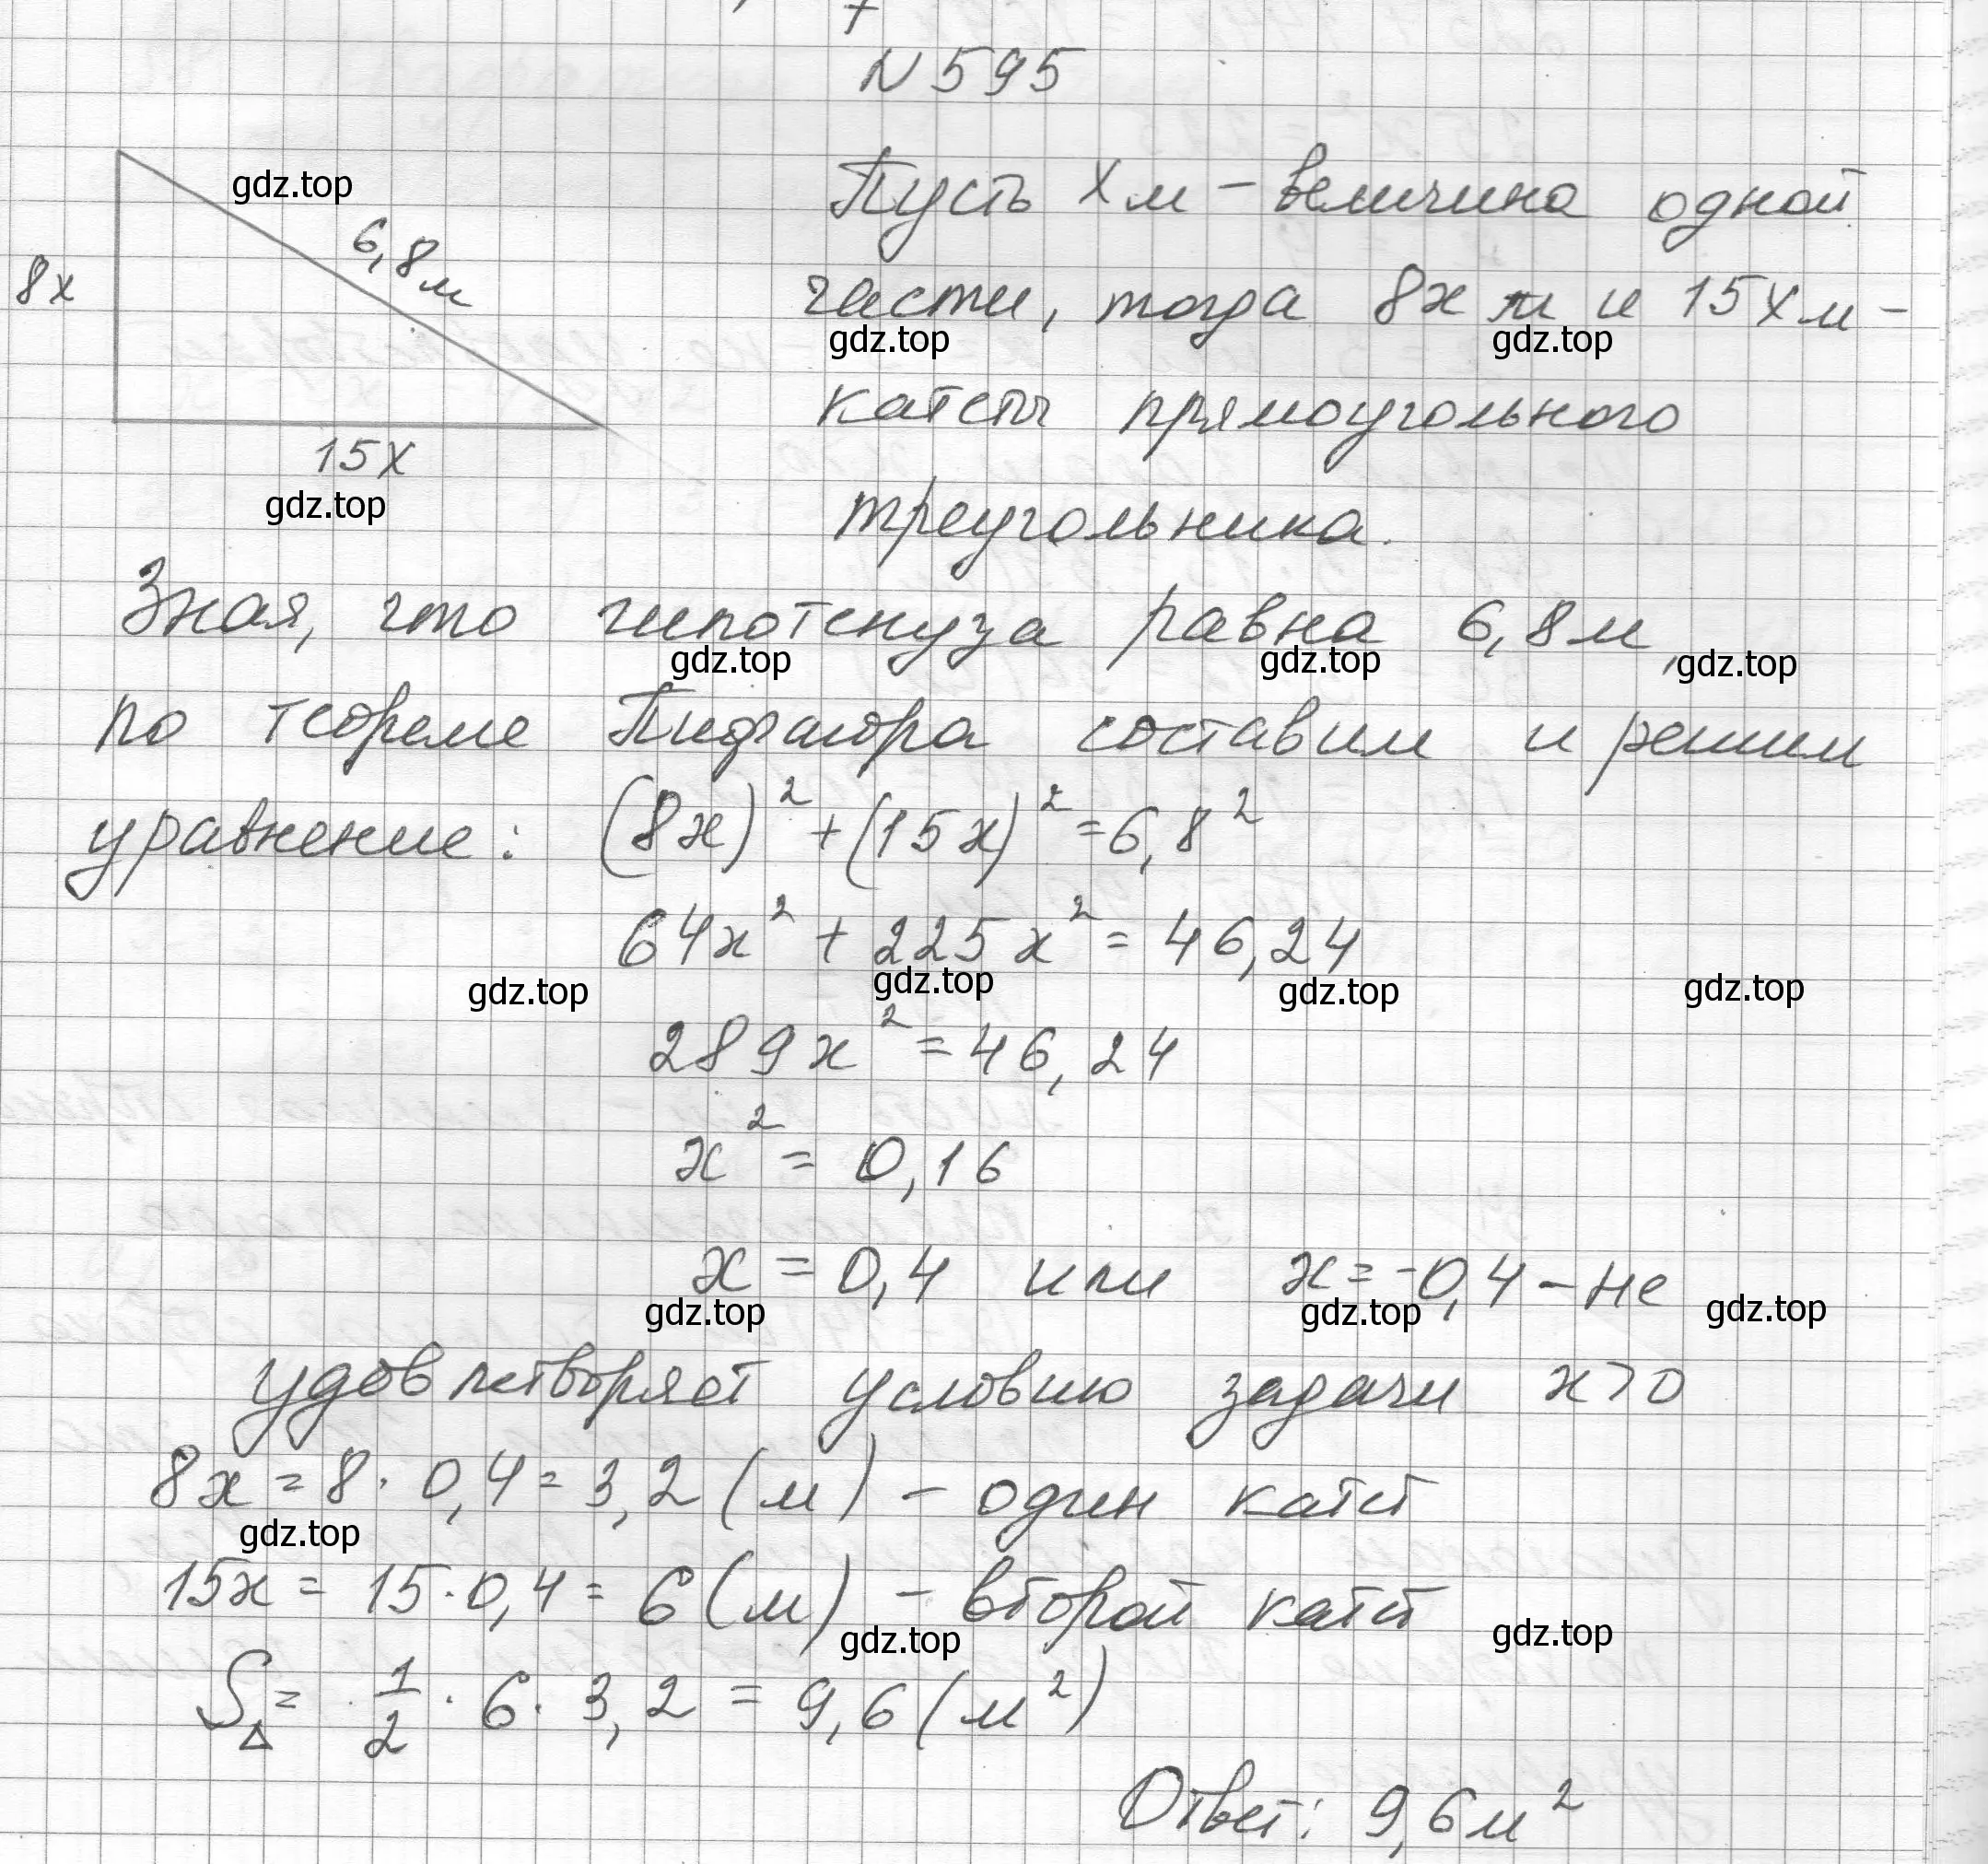 N 595
gdz.top
6,8 м
8x
15x
gdz.top
Пусть x м – величина одной
части, тогда 8x м и 15x м –
gdz.top gdz.top
катеты прямоугольного
треугольника.
Зная, что гипотенуза равна 6,8 м,
gdz.top gdz.top gdz.top
по теореме Пифагора составим и решим
уравнение: (8x)² + (15x)² = 6,8²
64x² + 225x² = 46,24
gdz.top gdz.top gdz.top gdz.top
289x² = 46,24
x² = 0,16
x = 0,4 или x = -0,4 – не
gdz.top gdz.top gdz.top
удовлетворяет условию задачи x>0
8x = 8 · 0,4 = 3,2 (м) – один катет
gdz.top
15x = 15 · 0,4 = 6 (м) – второй катет
gdz.top gdz.top
S△ = 1/2 · 6 · 3,2 = 9,6 (м²)
Ответ: 9,6 м²